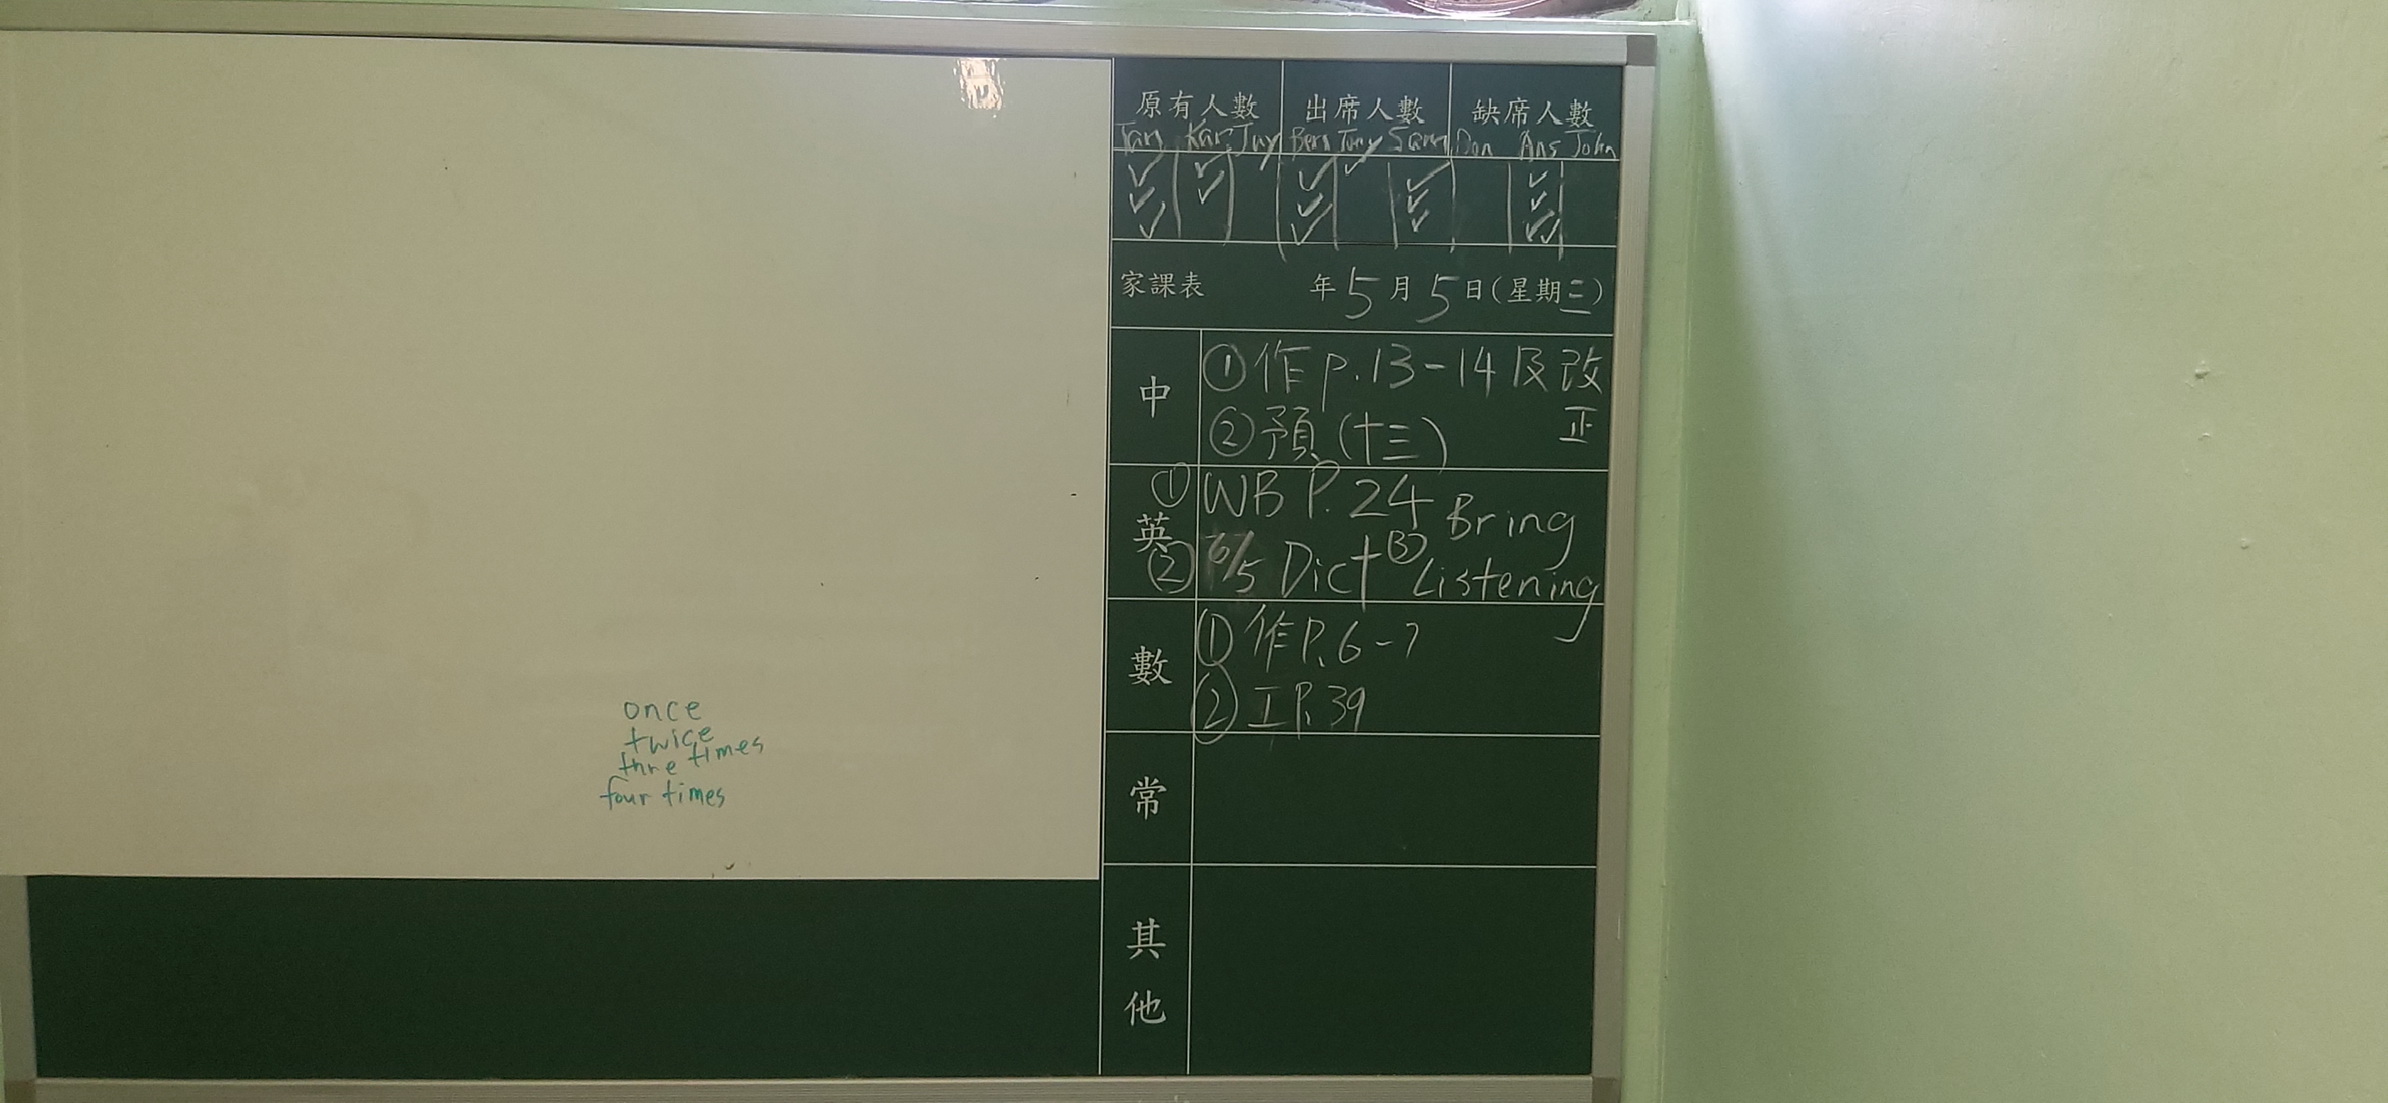 原有人數 出席人數 缺席人數
Tony Sam Don Ans John
家課表 年5月5日(星期三)
中
①作P.13-14及改
正
②預(十三)
英
①WB P.24
②6/5 Dict
③Bring
Listening
數
①作P.6-7
②工P.39
常
其
他
once
twice
thre times
four times